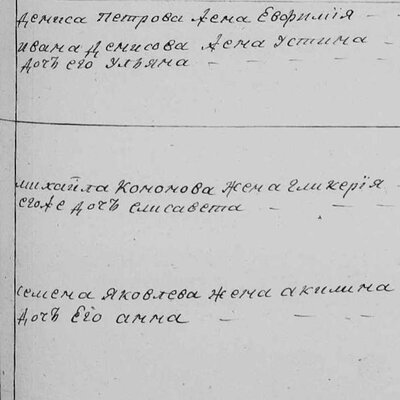 Дениса Петрова Жена Евфимїя
Ивана Денисова Жена Устина
Дочь его Ульяна
Михайла Кононова Жена Гликерїя
егоже дочь Елисавета
Семена Яковлева Жена Акилина
Дочь Его Анна